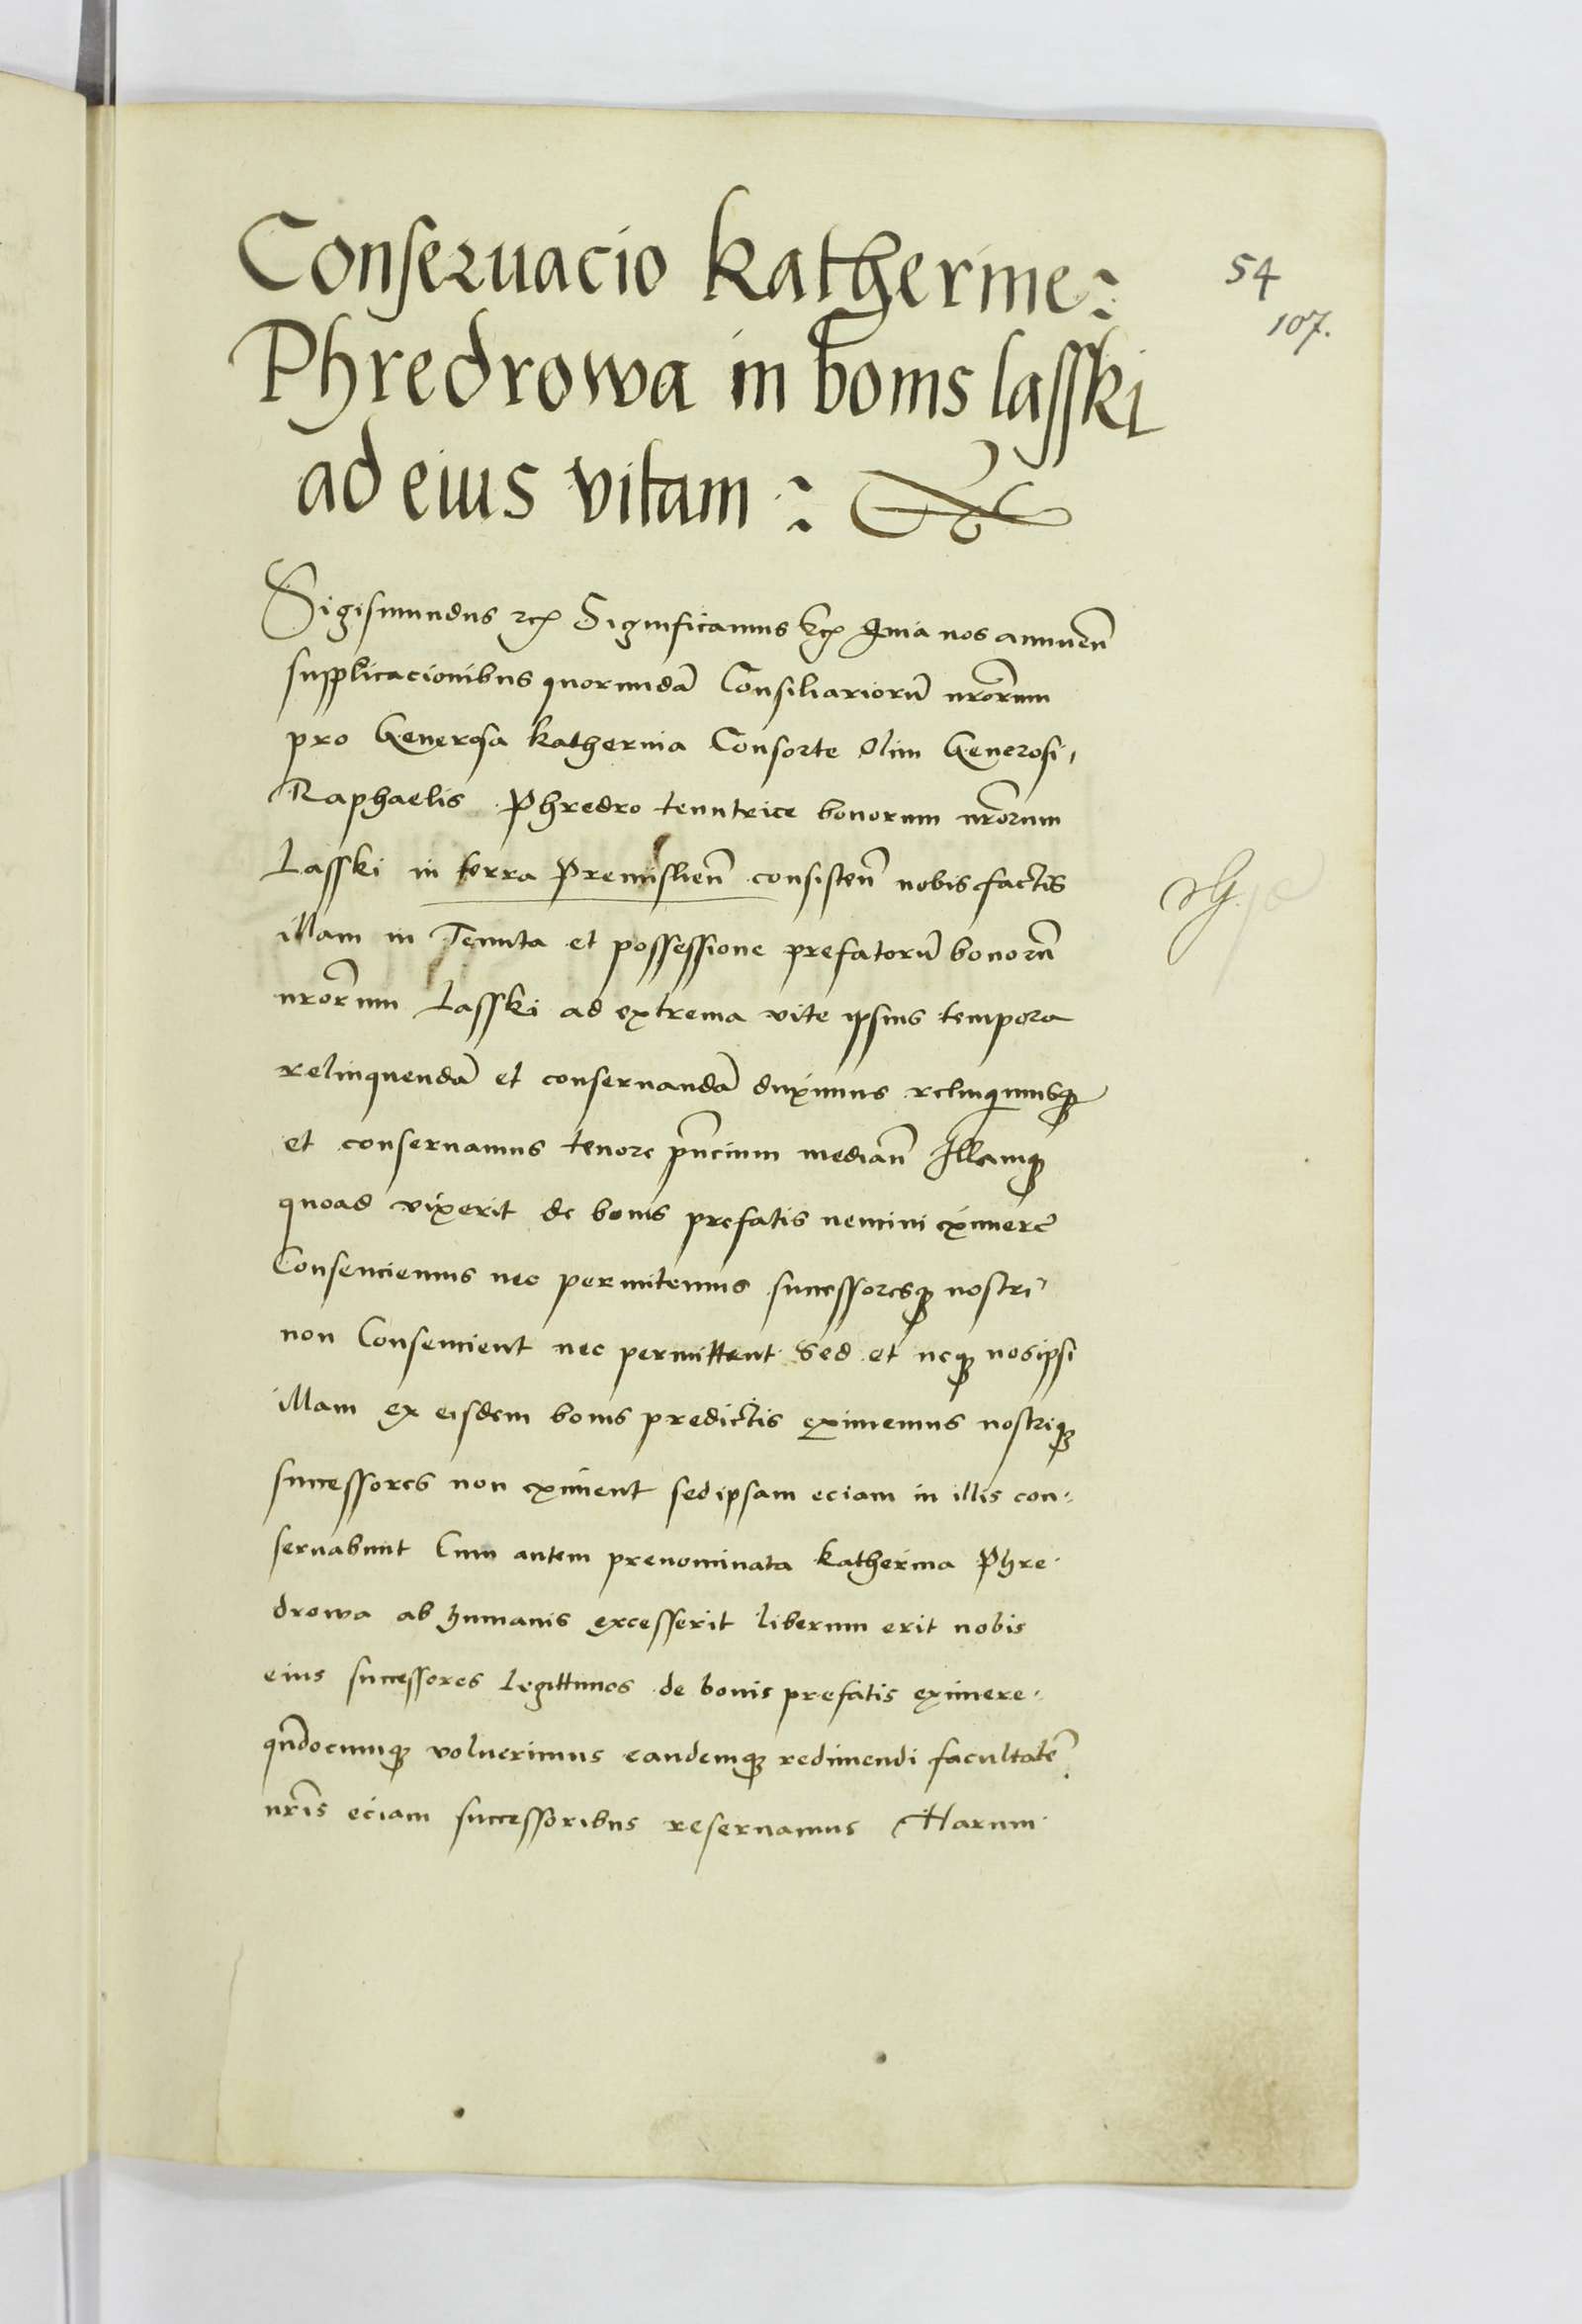 Conseruacio Katherine:
54
107.
Phredrowa in bonis lasski
ad eius vitam:
Sigismundus rex Significamus etc Quia nos annuen̄
supplicacionibus quorundā Consiliariorū nr̄orum
pro Generosa Katherina Consorte Olim Generosi
Raphaelis Phredro tenutrice bonorum nr̄orum
Lasski in terra Premislien̄ consisten̄ nobis factis
illam in Tenuta et possessione prefatorū bonorū
nr̄orum Lasski ad extrema vite ipsius tempora
relinquendā et conseruandā duximus relinquimusqꝫ
et conseruamus tenore pn̄cium median̄ Illamqꝫ
quoad vixerit de bonis prefatis nemini eximere
Consenciemus nec permitemus successoresqꝫ nostri
non Consencient nec permittent Sed et neqꝫ nos ipsi
illam ex eisdem bonis predictis eximemus nostriqꝫ
successores non eximent sed ipsam eciam in illis con-
seruabunt Cum autem prenominata Katherina Phre-
drowa ab humanis excesserit liberum erit nobis
eius successores legittimos de bonis prefatis eximere
qn̄documqꝫ voluerimus eandemqꝫ redimendi facultatē
nr̄is eciam successoribus reseruamus Harum